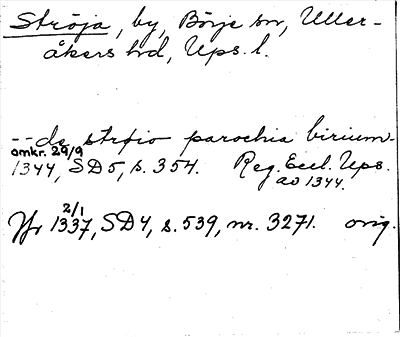 Ströja, by, Börje sn, Uller-
åkers hd, Ups. l.
-- de strøio parochia birium
omkr. 29/9
1344, SD5, s. 354. Reg. Eccl. Ups.
av 1344.
2/1
Jfr 1337, SD4, s. 539, nr. 3271. orig.